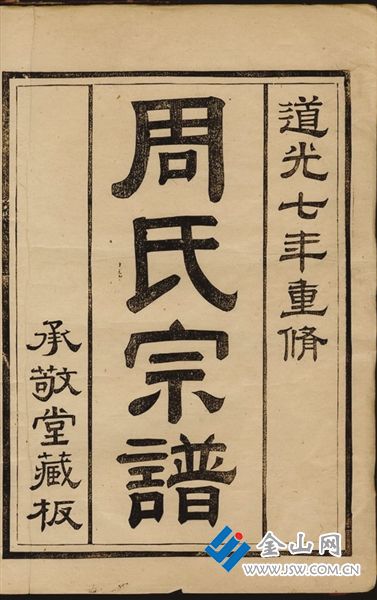 道光七年重脩
周氏宗譜
承敬堂藏板
金山网
WWW.JSW.COM.CN